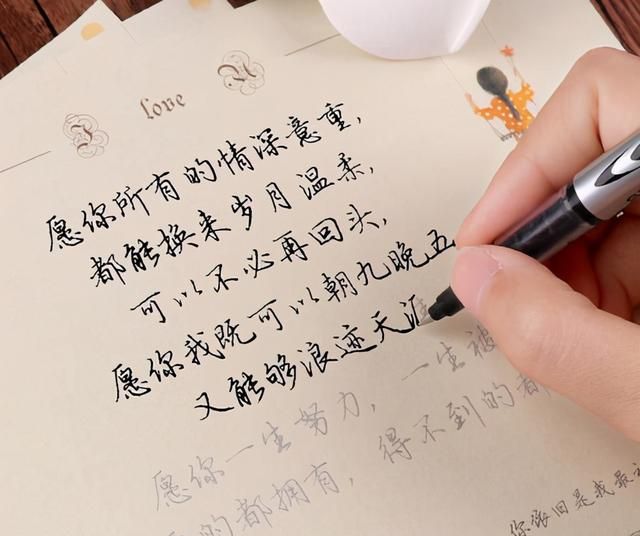 love
愿你所有的情深意重,
都能换来岁月温柔,
可以不必再回头,
愿你我既可以朝九晚五
又能够浪迹天涯
愿你一生努力, 一生被
的都拥有, 得不到的都
你依旧是我最